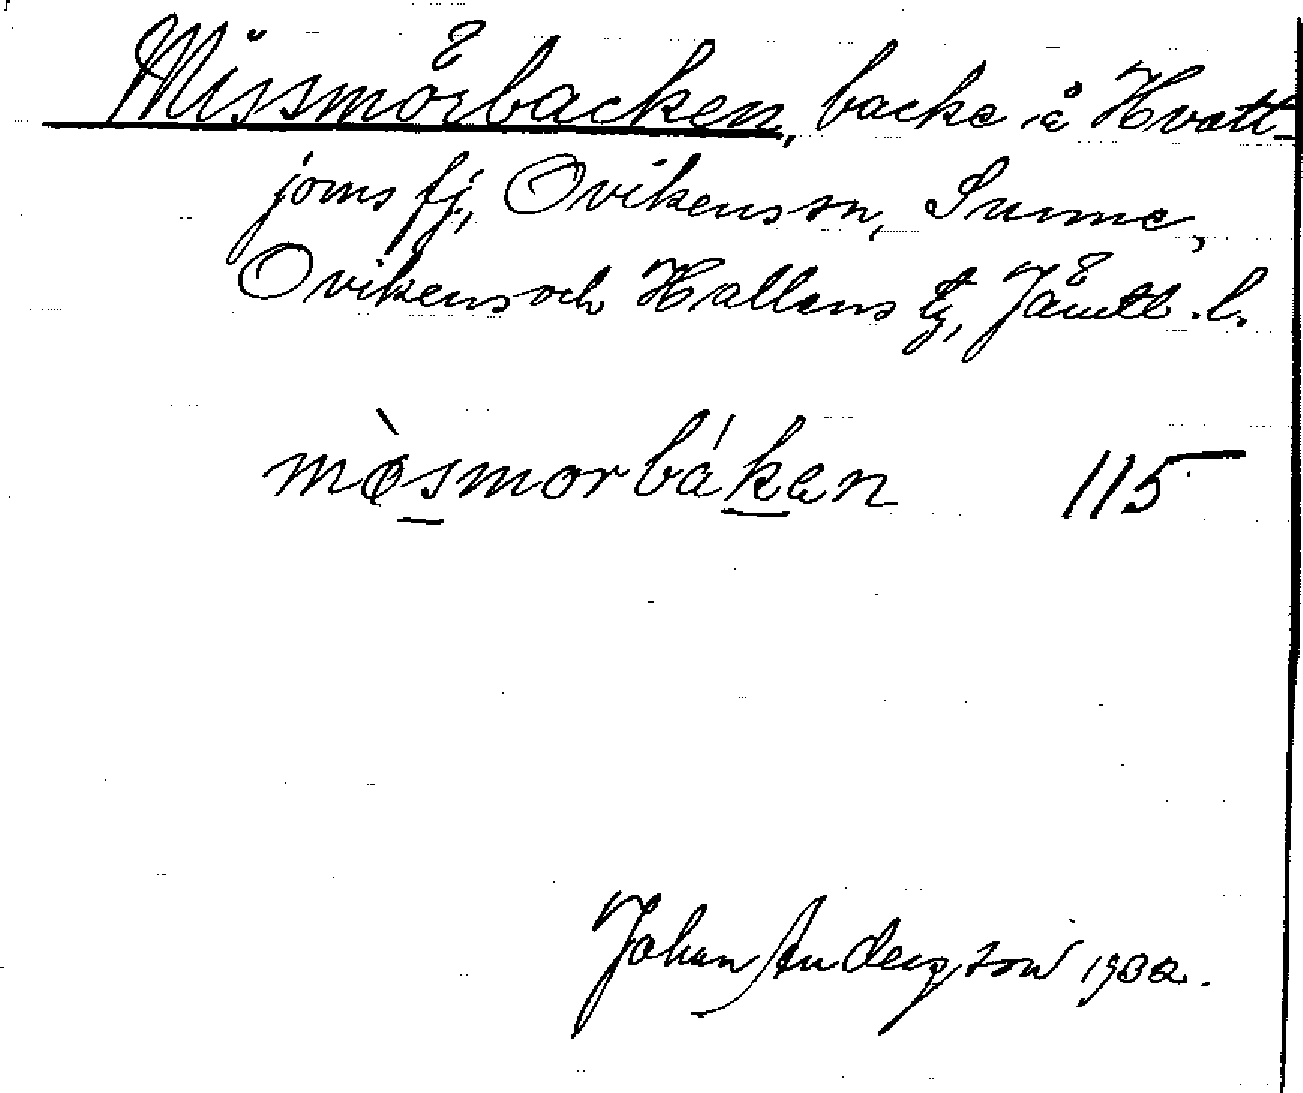 Missmörbacken, backe å Hvatt-
joms fj, Ovikens sn, Sunne,
Ovikens och Hallens tg, Jämtl. l.
mòsmorbákan 115
Johan Anderson 1932.